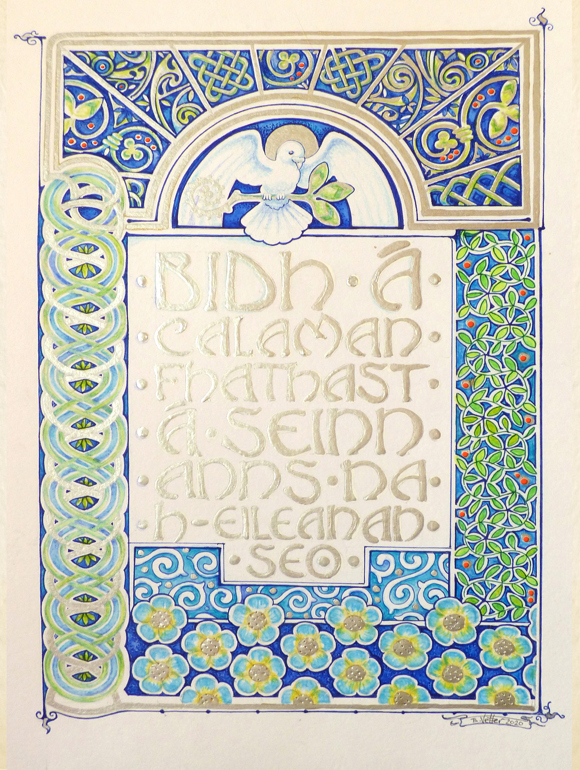 BIDH · Ā
· CALAMAN ·
· FHATHAST ·
· Ā · SEINN ·
· ANNS · NA ·
· H-EILEANAN ·
· SEO ·
B. Netter 2020